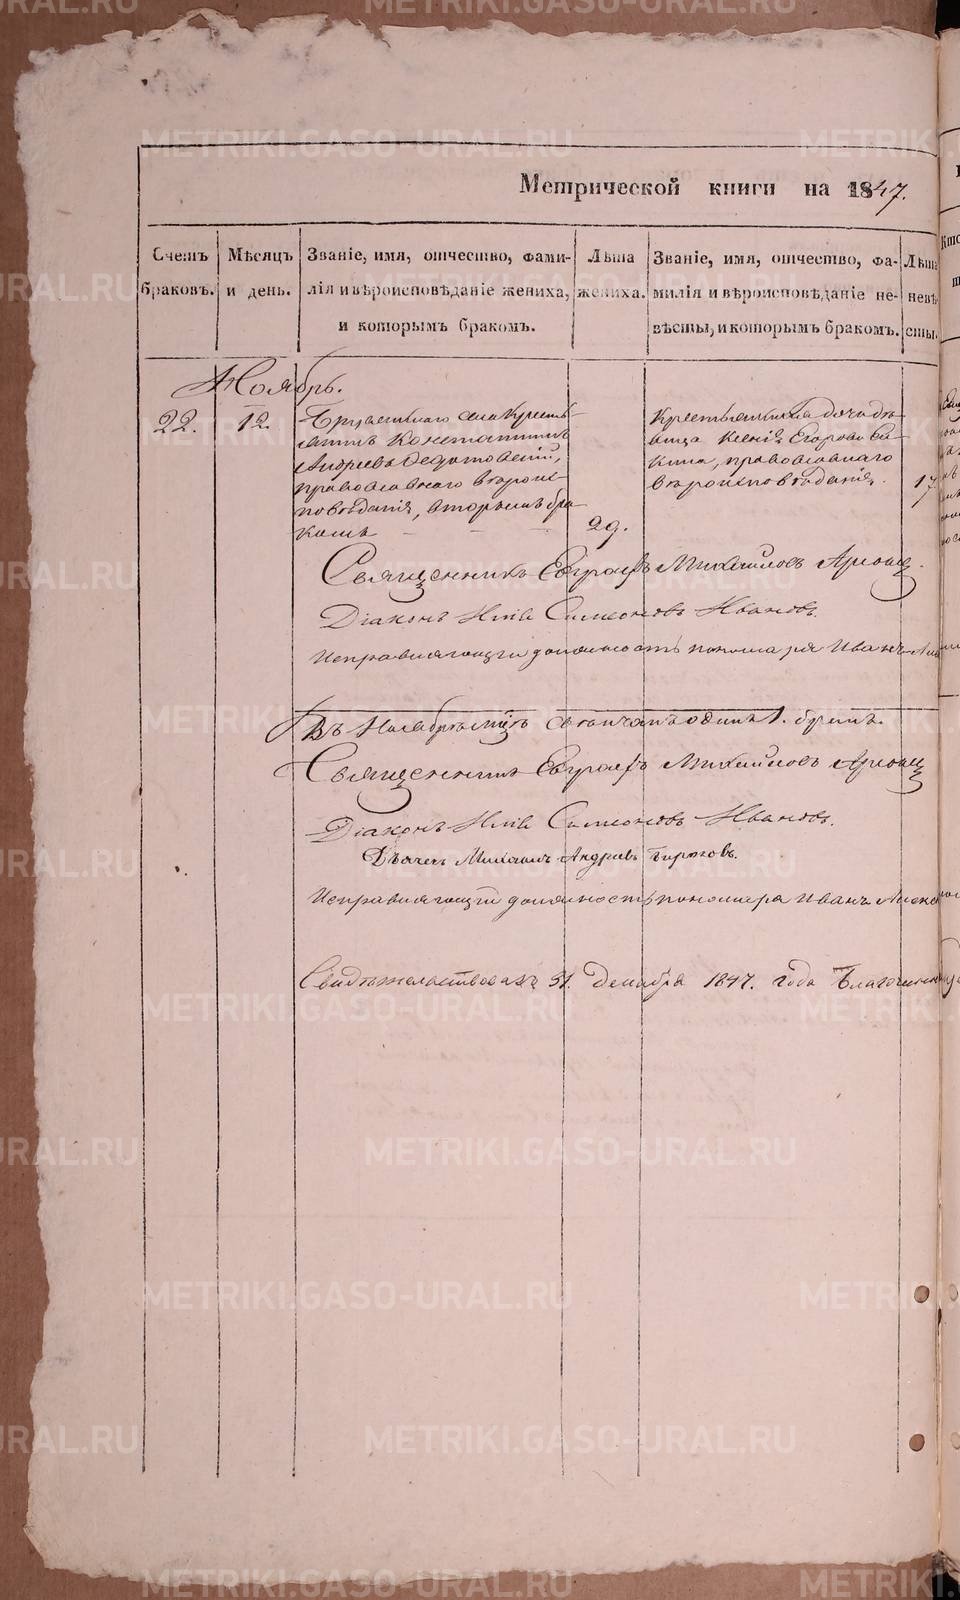 Метрической книги на 1847.
Счетъ браковъ.
Мѣсяцъ и день.
Званіе, имя, отчество, фами-
лія и вѣроисповѣданіе жениха,
и которымъ бракомъ.
Лѣта
жениха.
Званіе, имя, отчество, фа-
милія и вѣроисповѣданіе не-
вѣсты, и которымъ бракомъ.
Лѣта
невѣ
сты.
Ноябрь.
22.
12.
села Кресть-
янинъ Константинъ
Андреевъ
православнаго вѣроис-
повѣданія, вторымъ бра-
комъ
29.
Крестьянская дочь дѣ-
вица Ксенія Егорова
православнаго
вѣроисповѣданія.
17
Священникъ Евграфъ Михайловъ
Діаконъ Илія Симеоновъ Ивановъ.
Исправляющій должность пономаря Иванъ
Въ Ноябрѣ мцѣ свѣнчанъ одинъ 1. бракъ.
Священникъ Евграфъ Михайловъ
Діаконъ Илія Симеоновъ Ивановъ.
Дьячекъ Михаилъ Андреевъ
Исправляющій должность пономаря Иванъ
Свидѣтельствовалъ 31. декабря 1847. года
METRIKI.GASO-URAL.RU